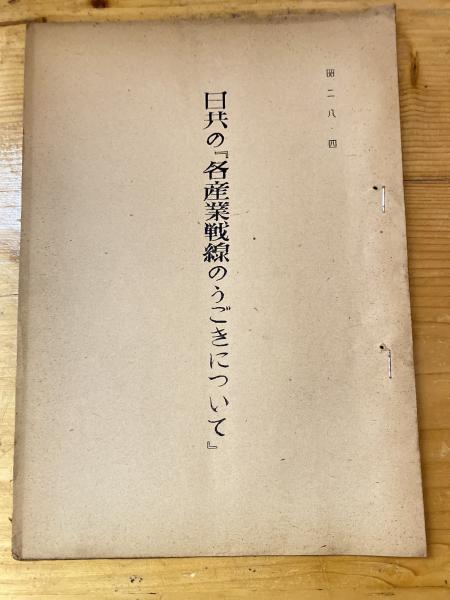 昭二八・四
日共の『各産業戦線のうごきについて』